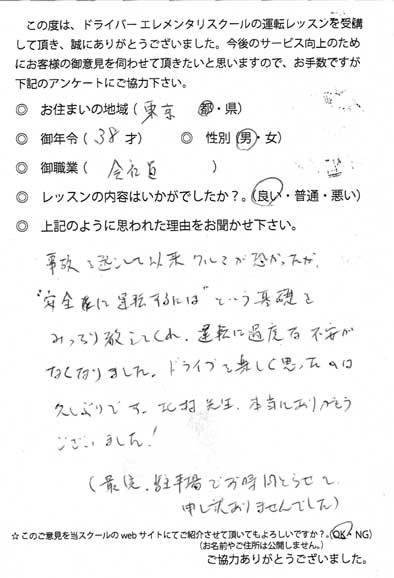 この度は、ドライバー エレメンタリスクールの運転レッスンを受講
して頂き、誠にありがとうございました。今後のサービス向上のため
にお客様の御意見を伺わせて頂きたいと思いますので、お手数ですが
下記のアンケートにご協力下さい。
◎ お住まいの地域（東京 都・県）
◎ 御年令（38 才） ◎ 性別（男・女）
◎ 御職業（会社員）
◎ レッスンの内容はいかがでしたか？。（良い・普通・悪い）
◎ 上記のように思われた理由をお聞かせ下さい。
事故を起こして以来クルマが恐かったが、
"安全に運転するには"という基礎を
みっちり教えてくれ、運転に過度な不安が
なくなりました。ドライブを楽しく思ったのは
久しぶりです。北村先生、本当にありがとう
ございました！
（最後、駐車場でお時間とらせて
申し訳ありませんでした）
☆このご意見を当スクールの web サイトにてご紹介させて頂いてもよろしいですか？。（OK・NG）
（お名前やご住所は公開しません。）
ご協力ありがとうございました。